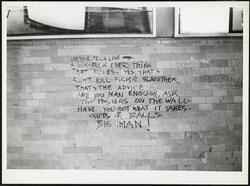 PRICK LIKE
A GUN-FUCK EVERYTHING
THAT MOVES-YES, THAT'S
RIGHT, KILL FUCK & SLAUGHTER
THATS THE ADVICE
ARE YOU MAN ENOUGH, ASK
THE POSTERS ON THE WALL-
HAVE YOU GOT WHAT IT TAKES-
GUTS & BALLS
BIG MAN!